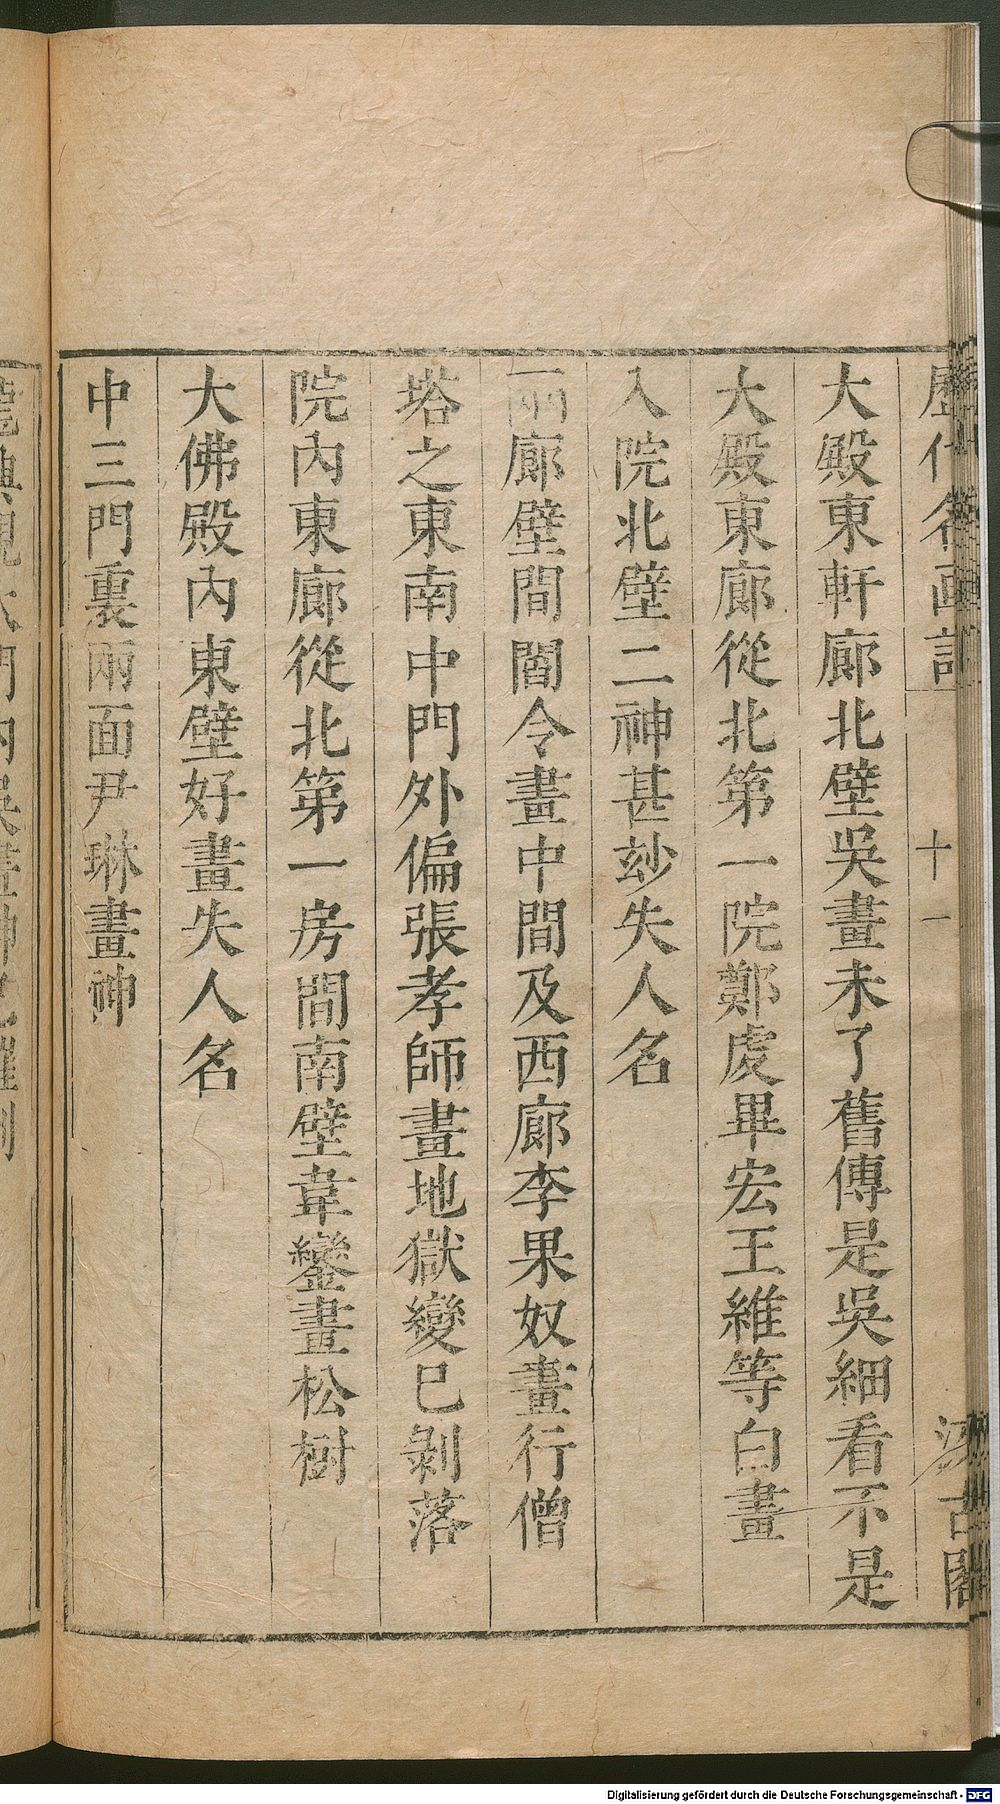 歷代名画記
十一
汲古閣
大殿東軒廊北壁吳畫未了舊傳是吳細看不是
大殿東廊從北第一院鄭虔畢宏王維等白畫
入院北壁二神甚玅失人名
兩廊壁間閻令畫中間及西廊李果奴畫行僧
塔之東南中門外偏張孝師畫地獄變已剝落
院內東廊從北第一房間南壁韋鑾畫松樹
大佛殿內東壁好畫失人名
中三門裏兩面尹琳畫神
Digitalisierung gefördert durch die Deutsche Forschungsgemeinschaft - DFG